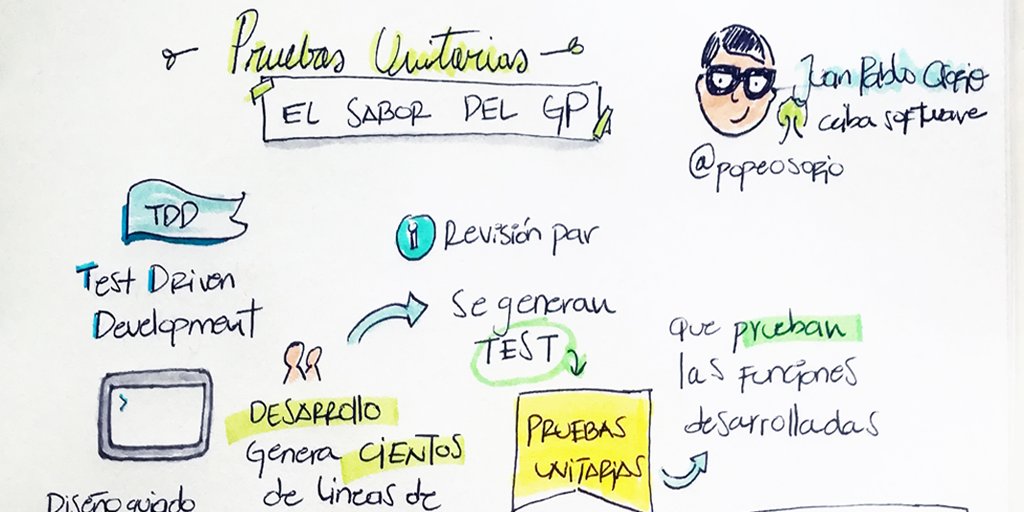 Pruebas Unitarias
EL SABOR DEL GP
Juan Pablo Osorio
ceiba software
@popeosorio
TDD
Test Driven
Development
i Revisión par
Se generan
TEST
que prueban
las funciones
desarrolladas
DESARROLLO
Genera CIENTOS
de lineas de
PRUEBAS
UNITARIAS
Diseño guiado